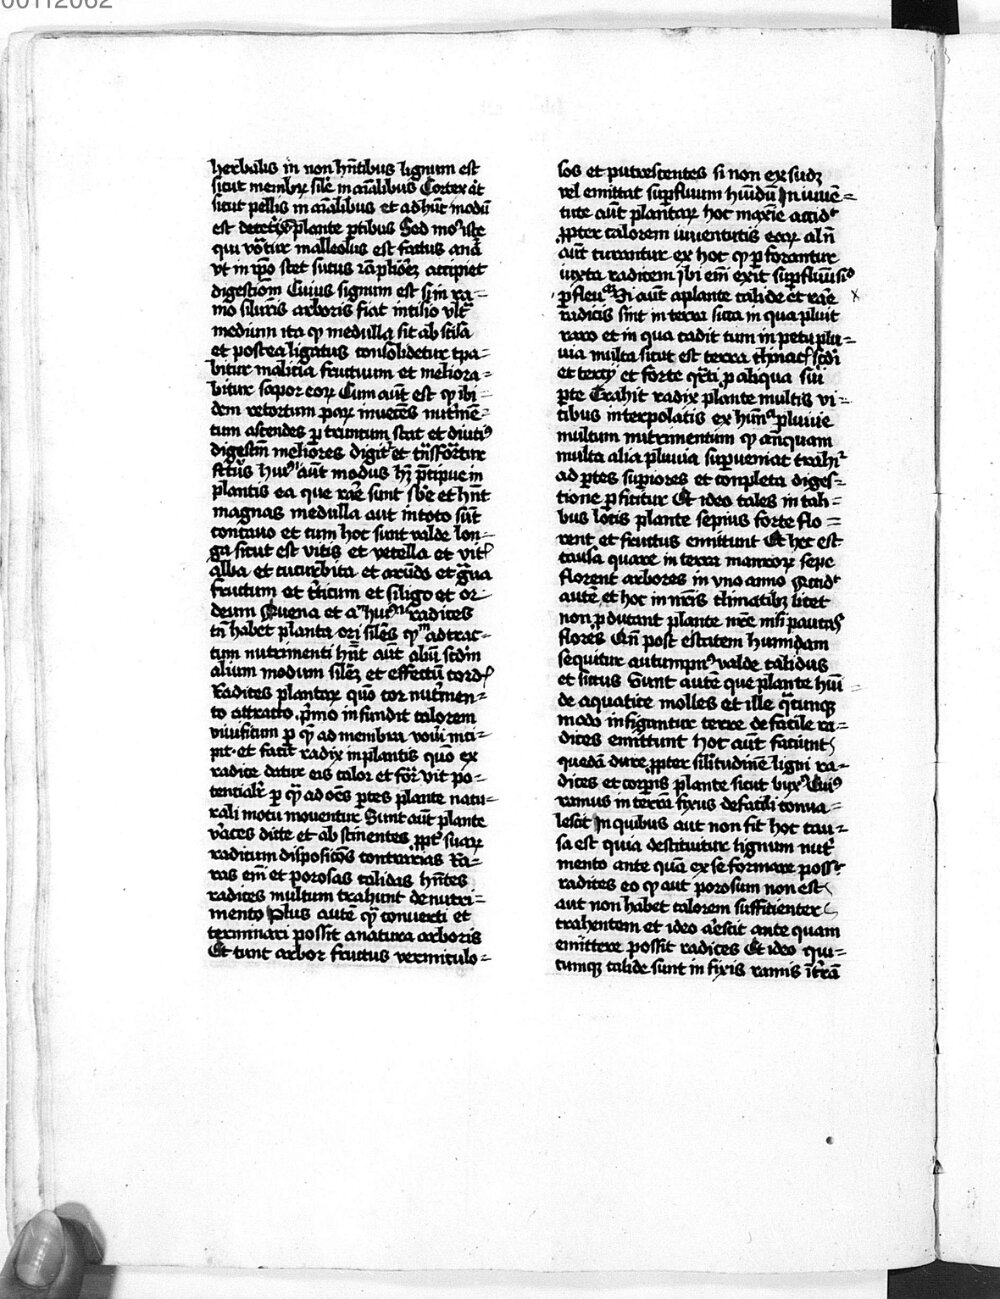 00112062
herbalis in non hñtibus lignum est
sicut membrꝝ silẽ in aĩalibus Cortex aũt
sicut pellis in aĩalibus et ad hũc modũ
est de plante ptibus Sed
qui võtur malleolus est factus
vt in ipõ stet sucus accipiet
digestiõm Cuius signum est si in ra-
mo siluestris arboris fiat incisio vlt
medium ita ꝙ medulla sit abscisa
et postea ligatus consolidetur cra-
bitur malicia fructuum et meliora-
bitur sapor eoꝝ Cum aũt est ꝙ ibi-
dem retortum nutrimẽ-
tum ascendẽs ꝑ truncum stat et diuti⁹
digestiõ meliores digit et
modus hꝫ p̃cipue in
plantis ea que rare sunt sbẽ et hñt
magnas medullas aut in toto sũt
concauo et cum hoc sunt valde lon-
ga sicut est vitis et vetella et vit
alba et cucurbita et arũdo et g̃na
fructum et t̃ticum et siligo et or-
deum Auena et radices
tñ habet planta ori silẽs ꝙ ad trac-
tum nutrimenti hñt aut aliũ scđm
alium modum silẽs et effectũ cord
Radices plantaꝝ quo cor nutrimen-
to attracto p̃mo infundit calorem
viuificum ꝑ quẽ ad membra moueri inci-
pit et facit radix in plantis quo ex
radice datur eis calor et for vit po-
tentialis ꝑ quẽ ad oẽs ptes plante natu-
rali motu mouentur Sunt aũt plante
voraces dicte et abstinentes ꝓpt suaꝝ
radicum disposicões contrarias Ra-
ras em̃ et porosas calidas hñtes
radices multum trahunt de nutri-
mento Plus autẽ quã conuerti et
terminari possit a natura arboris
Et tunc arbor fructus vermiculo-
sos et putrescentes si non exsudꝫ
vel emittat suꝑfluum humidũ In iuuẽ-
tute aũt plantaꝝ hoc maxĩe accidt
ꝓpter calorem iuuentutis eaꝝ al'ñ
aũt curantur ex hoc ꝙ ꝑforantur
iuxta radicem ibi em̃ exit suꝑfluum
Si aũt a plante calide et rare
radicis sint in terra sicca in qua pluit
raro et in qua cadit cum inpetu plu-
uia multa sicut est terra scđi
et tercij et forte qrti ꝑ aliqua sui
pte Trahit radix plante multis vi-
cibus interpolatis ex pluuie
multum nutrimentum ꝙ anquam
multa alia pluuia suꝑueniat trahit
ad ptes suꝑiores et completa diges-
tione ꝑficitur Et ideo tales in tali-
bus locis plante sepius forte flo-
rent et fructus emittunt Et hec est
causa quare in terra mauroꝝ sepe
florent arbores in vno anno Accidt
autẽ et hoc in nr̃is climatibꝫ licet
non ꝓducant plante nr̃e nisi paucas
flores Cũ post estatem humidam
sequitur autumpn⁹ valde calidus
et siccus Sunt autẽ que plante humi-
de aquatice molles et ille q̃cumqꝫ
modo infigantur terre de facile ra-
dices emittunt hoc aũt faciunt
quedã dure ꝓpter silitudinẽ ligni ra-
dices et corpis plante sicut bux⁹ Cui⁹
ramus in terrã fixus de facili conua-
lescit In quibus aut non fit hoc cau-
sa est quia destituitur lignum nutri
mento ante quã ex se formare posst
radices eo ꝙ aut porosum non est
aut non habet calorem sufficienter
trahentem et ideo arescit ante quam
emittere possit radices Et ideo qui-
cumqꝫ calide sunt in fixis ramis ĩ tr̃ã